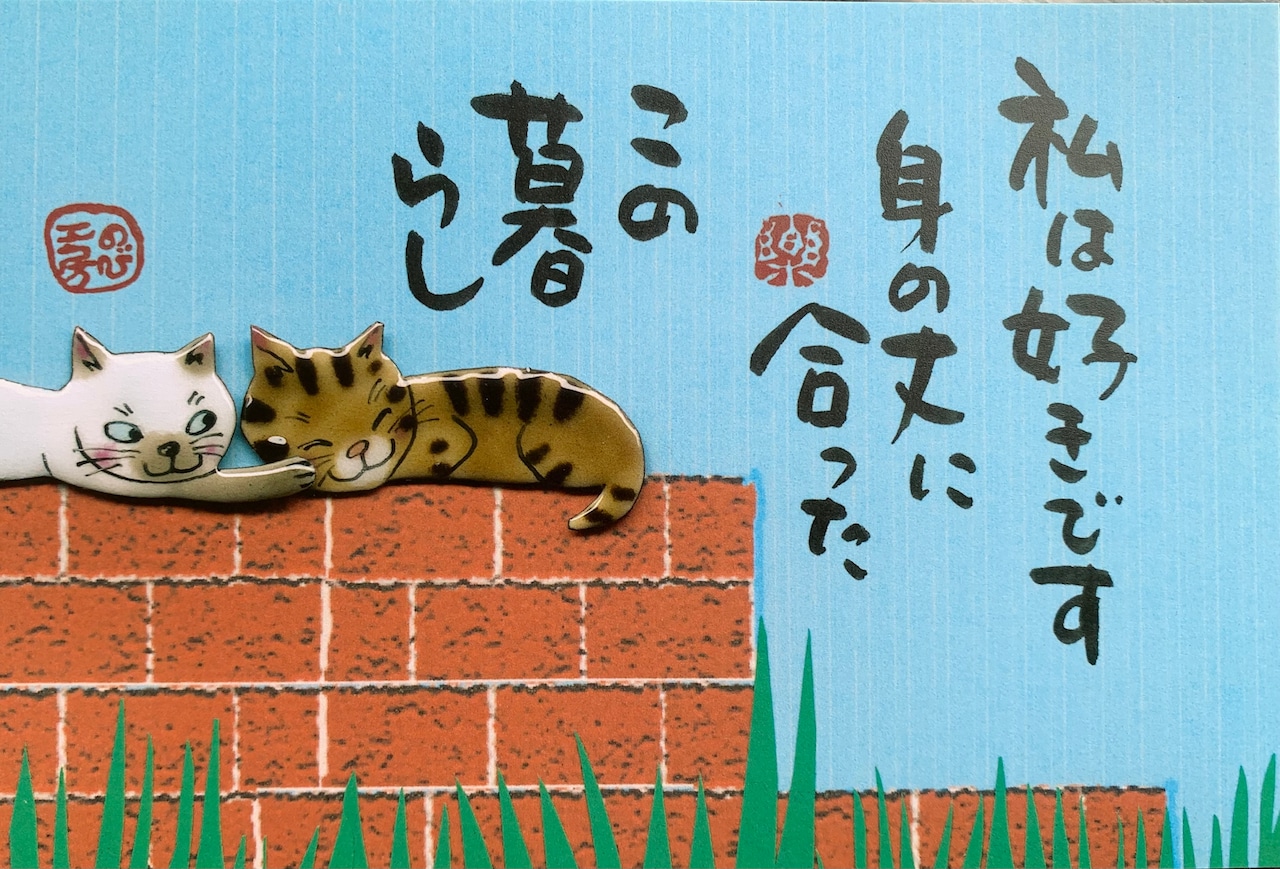 私は好きです
身の丈に
合った
この
暮
らし
のび
工房